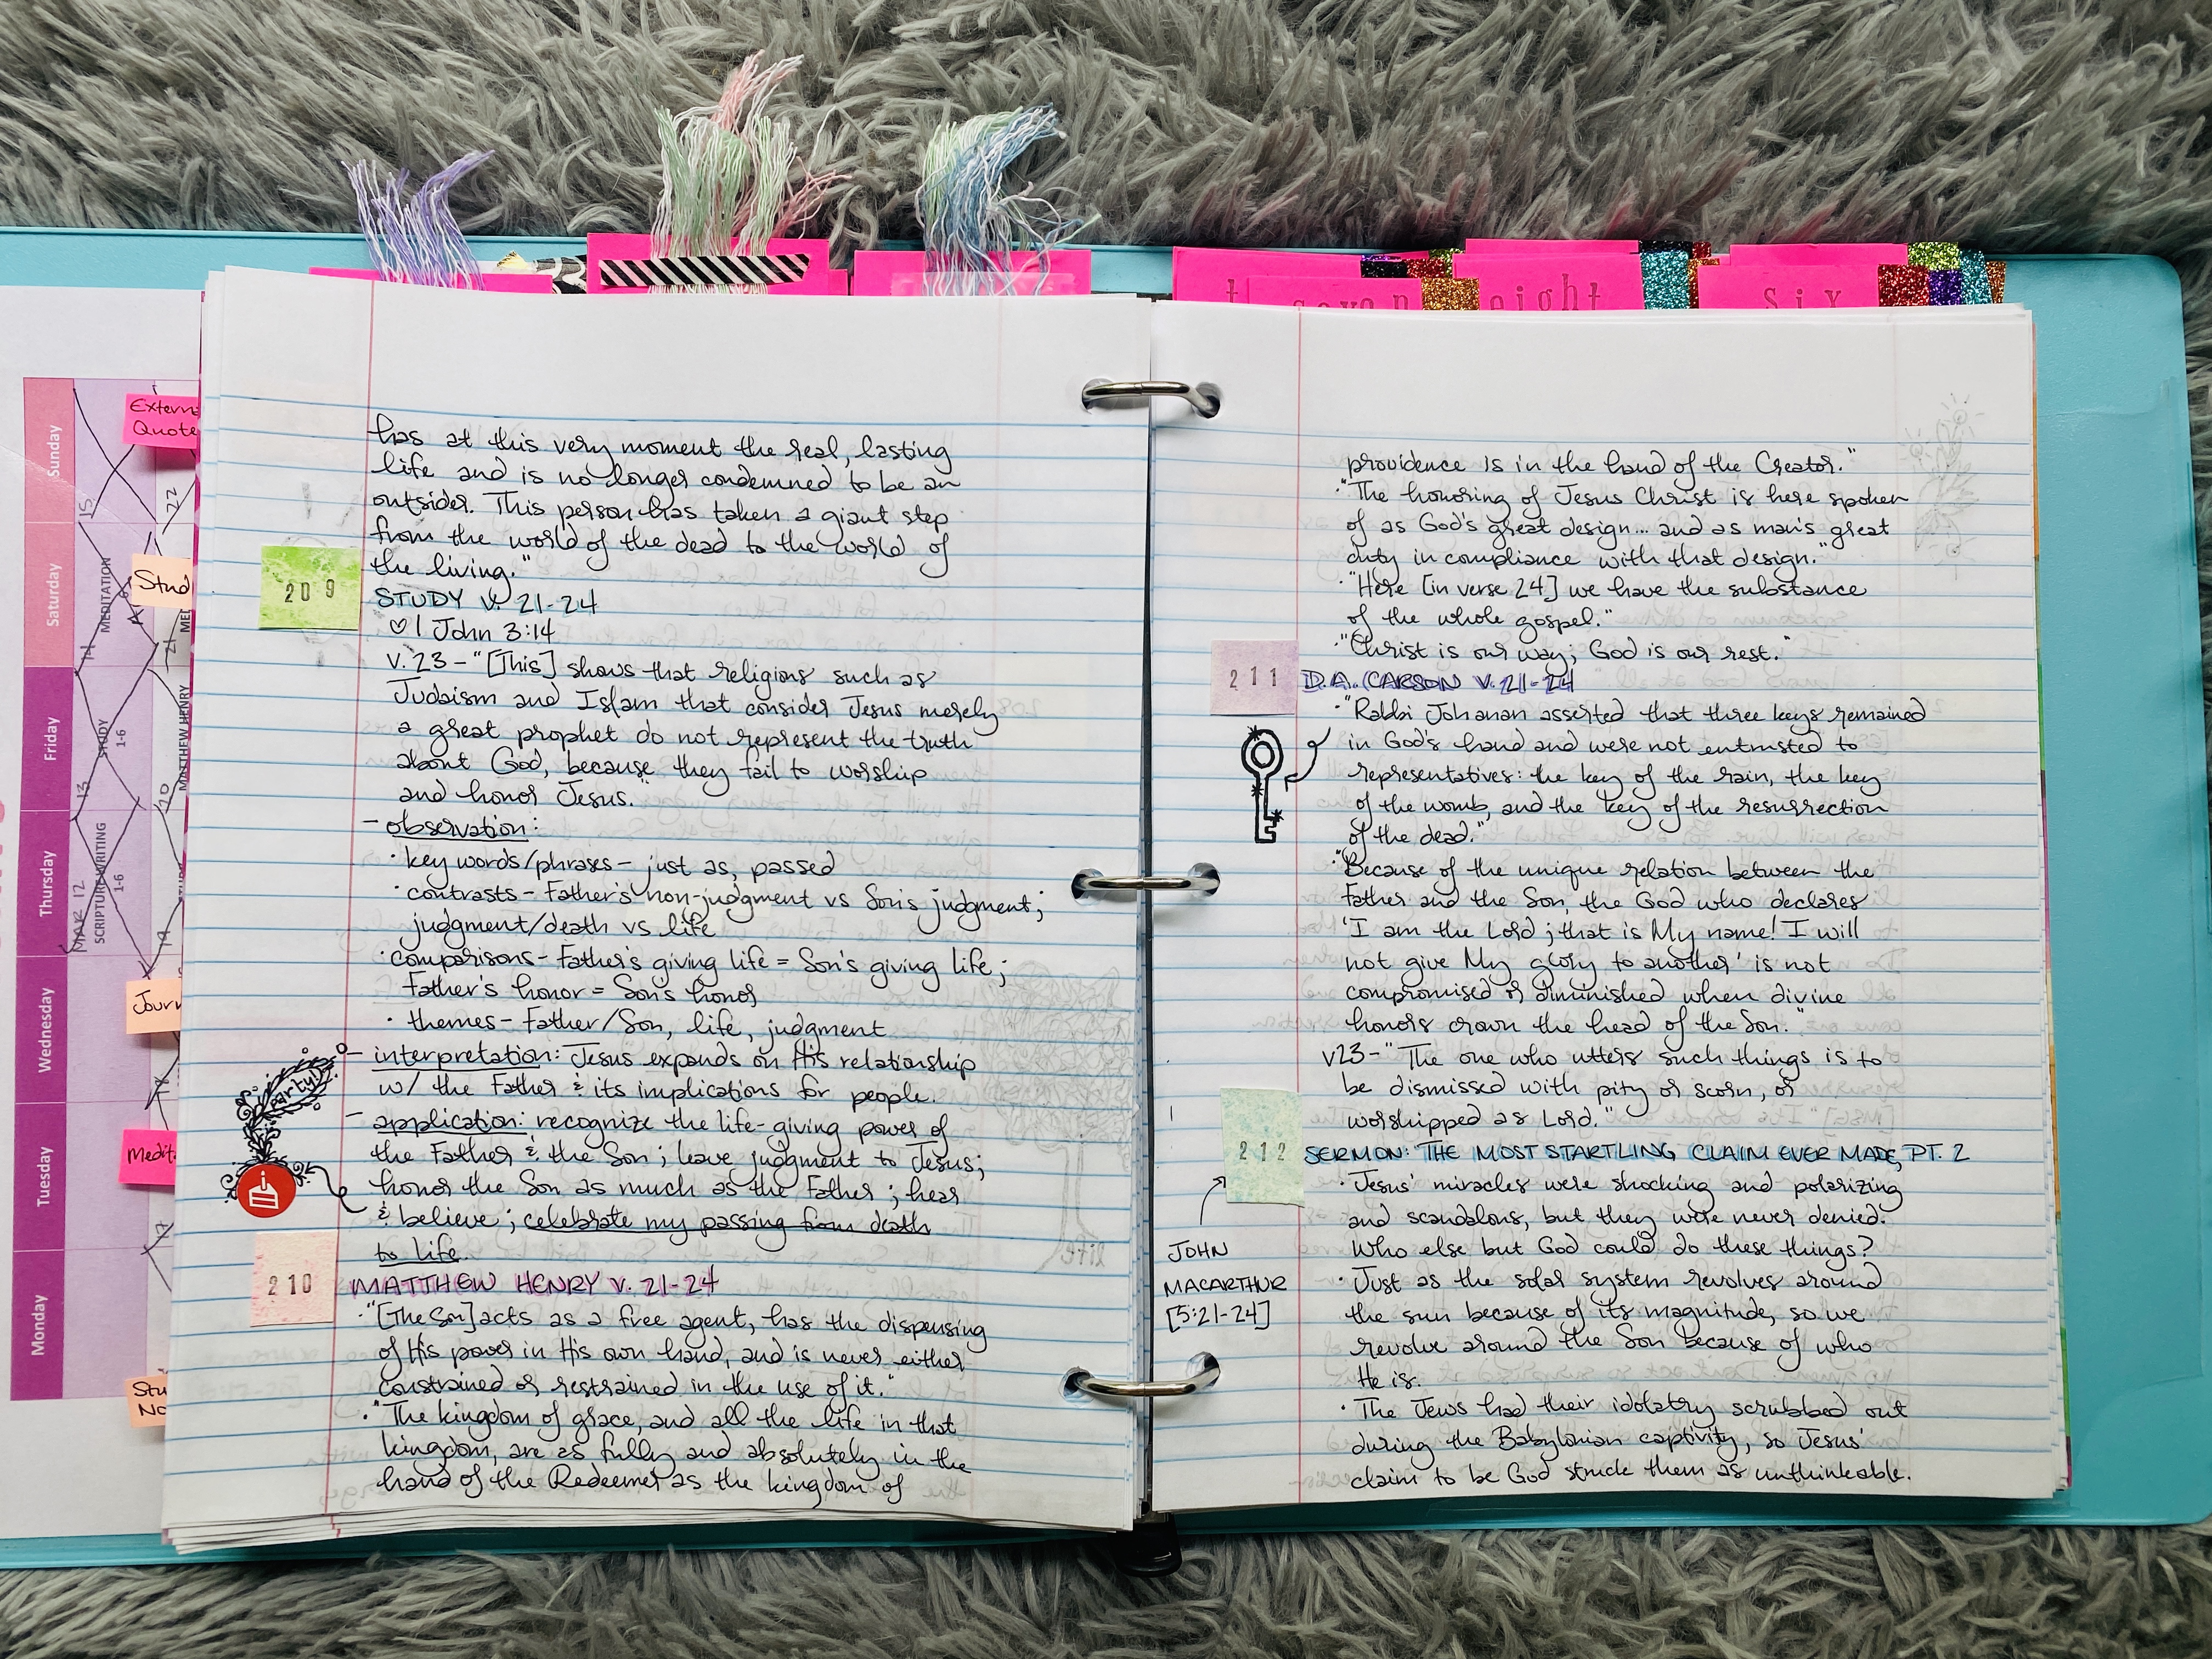 seven
eight
six
Sunday
Saturday
Friday
Thursday
Wednesday
Tuesday
Monday
Quote
Stud
Jour
Medit
MEDITATION
STUDY
1-6
MATTHEW HENRY
SCRIPTURE WRITING
1-6
MAR 12
13
15
22
has at this very moment the real, lasting
life and is no longer condemned to be an
outsider. This person has taken a giant step
from the world of the dead to the world of
the living."
209
STUDY V. 21-24
♡ 1 John 3:14
v. 23 - "[This] shows that religions such as
Judaism and Islam that consider Jesus merely
a great prophet do not represent the truth
about God, because they fail to worship
and honor Jesus."
- observation:
· key words/phrases - just as, passed
· contrasts - Father's non-judgment vs Son's judgment;
judgment/death vs life
· comparisons - Father's giving life = Son's giving life;
Father's honor = Son's honor
· themes - Father/Son, life, judgment
- interpretation: Jesus expands on His relationship
w/ the Father & its implications for people.
party!
- application: recognize the life-giving power of
the Father & the Son; leave judgment to Jesus;
honor the Son as much as the Father; hear
& believe; celebrate my passing from death
to life.
210
MATTHEW HENRY V. 21-24
· "[The Son] acts as a free agent, has the dispensing
of His power in His own hand, and is never either
constrained or restrained in the use of it."
· "The kingdom of grace, and all the life in that
kingdom, are as fully and absolutely in the
hand of the Redeemer as the kingdom of
providence is in the hand of the Creator."
· "The honoring of Jesus Christ is here spoken
of as God's great design... and as man's great
duty in compliance with that design."
· "Here [in verse 24] we have the substance
of the whole gospel."
· "Christ is our way; God is our rest."
211
D.A. CARSON V. 21-24
· "Rabbi Johanan asserted that three keys remained
in God's hand and were not entrusted to
representatives: the key of the rain, the key
of the womb, and the key of the resurrection
of the dead."
· "Because of the unique relation between the
Father and the Son, the God who declares
'I am the Lord; that is My name! I will
not give My glory to another' is not
compromised or diminished when divine
honors crown the head of the Son."
v23 - "The one who utters such things is to
be dismissed with pity or scorn, or
worshipped as Lord."
212
SERMON: "THE MOST STARTLING CLAIM EVER MADE, PT. 2
JOHN
MACARTHUR
[5:21-24]
· Jesus' miracles were shocking and polarizing
and scandalous, but they were never denied.
Who else but God could do these things?
· Just as the solar system revolves around
the sun because of its magnitude, so we
revolve around the Son because of who
He is.
· The Jews had their idolatry scrubbed out
during the Babylonian captivity, so Jesus'
claim to be God struck them as unthinkable.